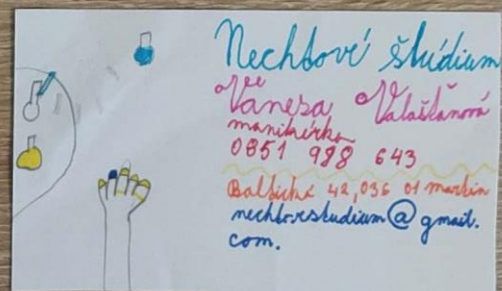 Nechtové štúdium
Vanesa Valaštanová
manikérka
0851 988 643
42, 036 01 martin
nechtovestudium@gmail.
com.